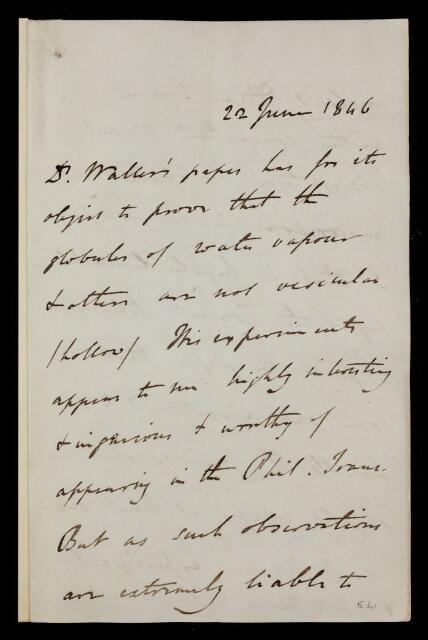 22 June 1846
Dr. Waller's paper has for its
object to prove that the
globules of water vapour
& others are not vesicular
(hollow) His experiments
appear to me highly interesting
& ingenious & worthy of
appearing in the Phil. Trans.
But as such observations
are extremely liable to
541